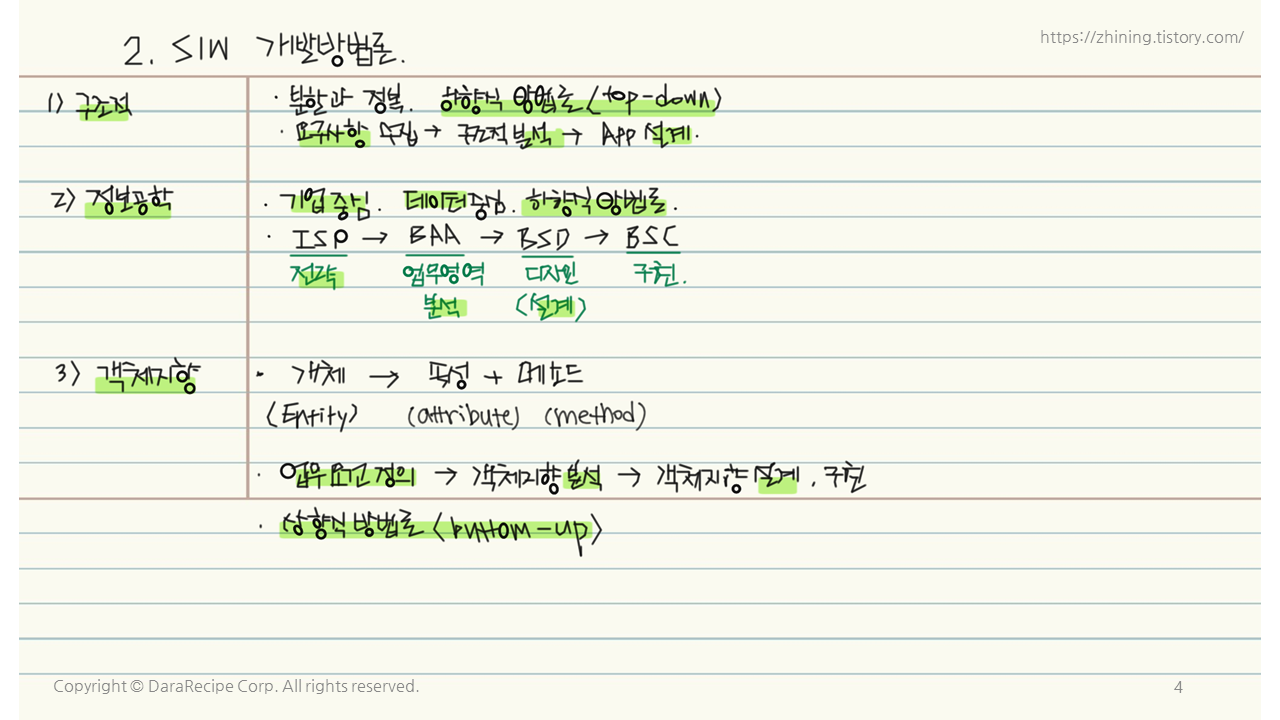 https://zhining.tistory.com/
2. S/W 개발방법론.
1) 구조적
· 분할과 정복. 하향식 방법론(top-down)
· 요구사항 수집 → 구조적 분석 → App 설계.
2) 정보공학
· 기업 중심. 데이터 중심. 하향식 방법론.
· ISP → BAA → BSD → BSC
전략 업무영역 디자인 구현.
분석 (설계)
3) 객체지향
· 개체 → 속성 + 메소드
(Entity) (attribute) (method)
· 업무 요건 정의 → 객체지향 분석 → 객체지향 설계, 구현
· 상향식 방법론 (buttom-up)
Copyright © DaraRecipe Corp. All rights reserved.
4